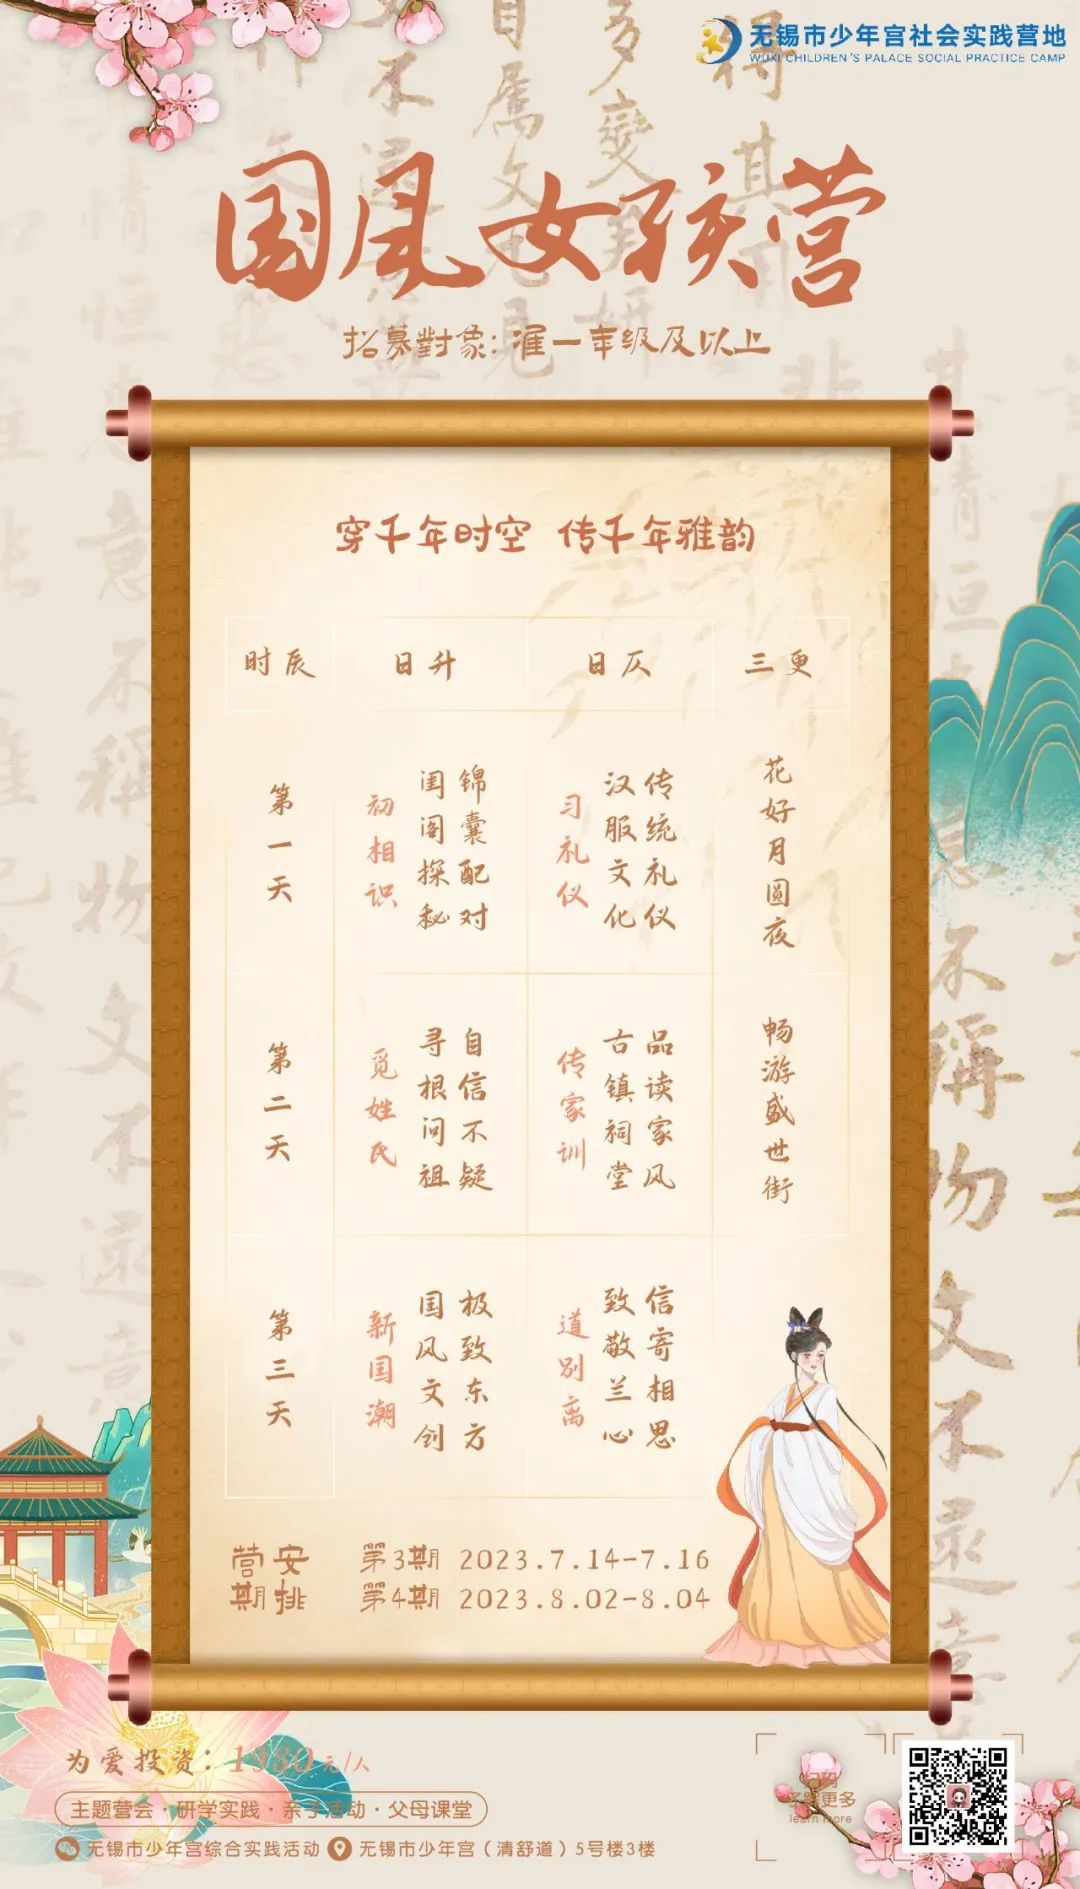 无锡市少年宫社会实践营地
WUXI CHILDREN'S PALACE SOCIAL PRACTICE CAMP
国风女孩营
招募對象:准一年级及以上
穿千年时空 传千年雅韵
时辰 日升 日仄 三更
第一天
初相识
闺阁探秘
锦囊配对
习礼仪
汉服文化
传统礼仪
花好月圆夜
第二天
觅姓氏
寻根问祖
自信不疑
传家训
古镇祠堂
品读家风
畅游盛世街
第三天
新国潮
国风文创
极致东方
道别离
致敬兰心
信寄相思
营期安排
第3期 2023.7.14-7.16
第4期 2023.8.02-8.04
为爱投资：1980元/人
主题营会·研学实践·亲子活动·父母课堂
无锡市少年宫综合实践活动 无锡市少年宫（清舒道）5号楼3楼
扫码
了解更多
learn more